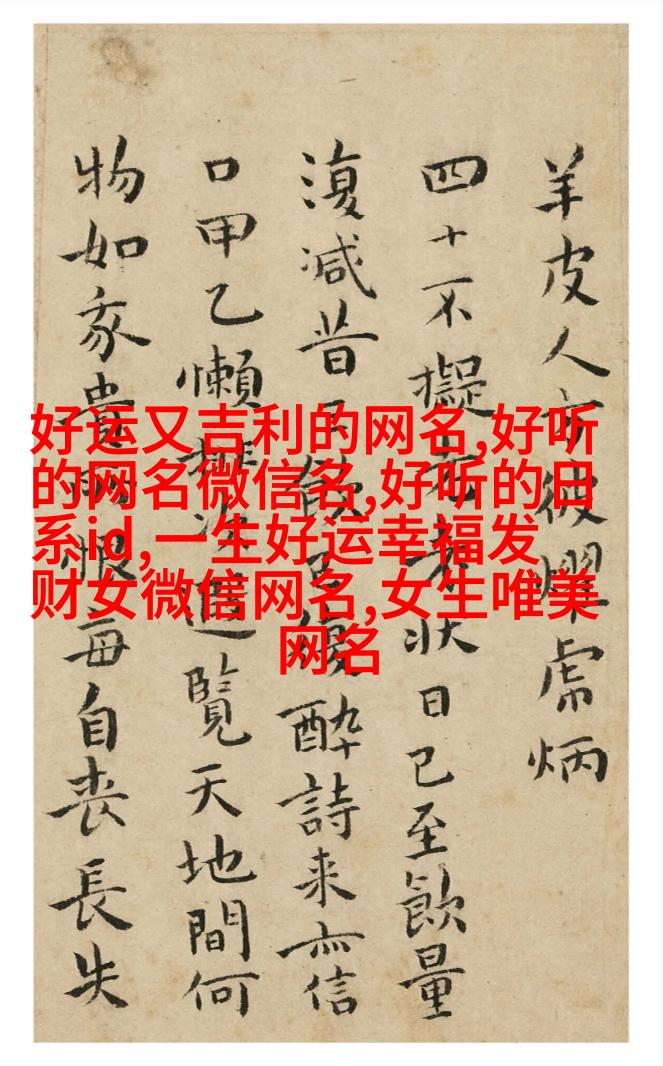 好运又吉利的网名,好听
的网名微信名,好听的日
系id,一生好运幸福发
财女微信网名,女生唯美
网名
羊皮人
四十不擬老 狀日已至飲量
復減昔 飲 醉詩来亦信
口甲乙懶 覽天地間何
物如豕 恨每自喪長失